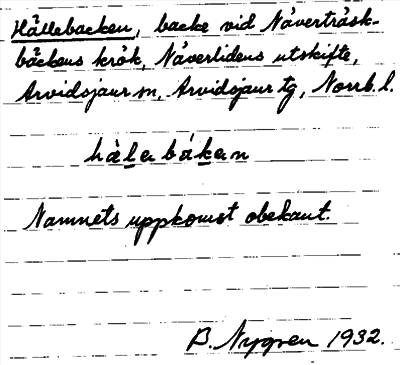 Hällebacken, backe vid Näverträsk-
bäckens krök, Näverlidens utskifte,
Arvidsjaur sn, Arvidsjaur tg, Norrb. l.
hàlebáken
Namnets uppkomst obekant.
B. Nygren 1932.